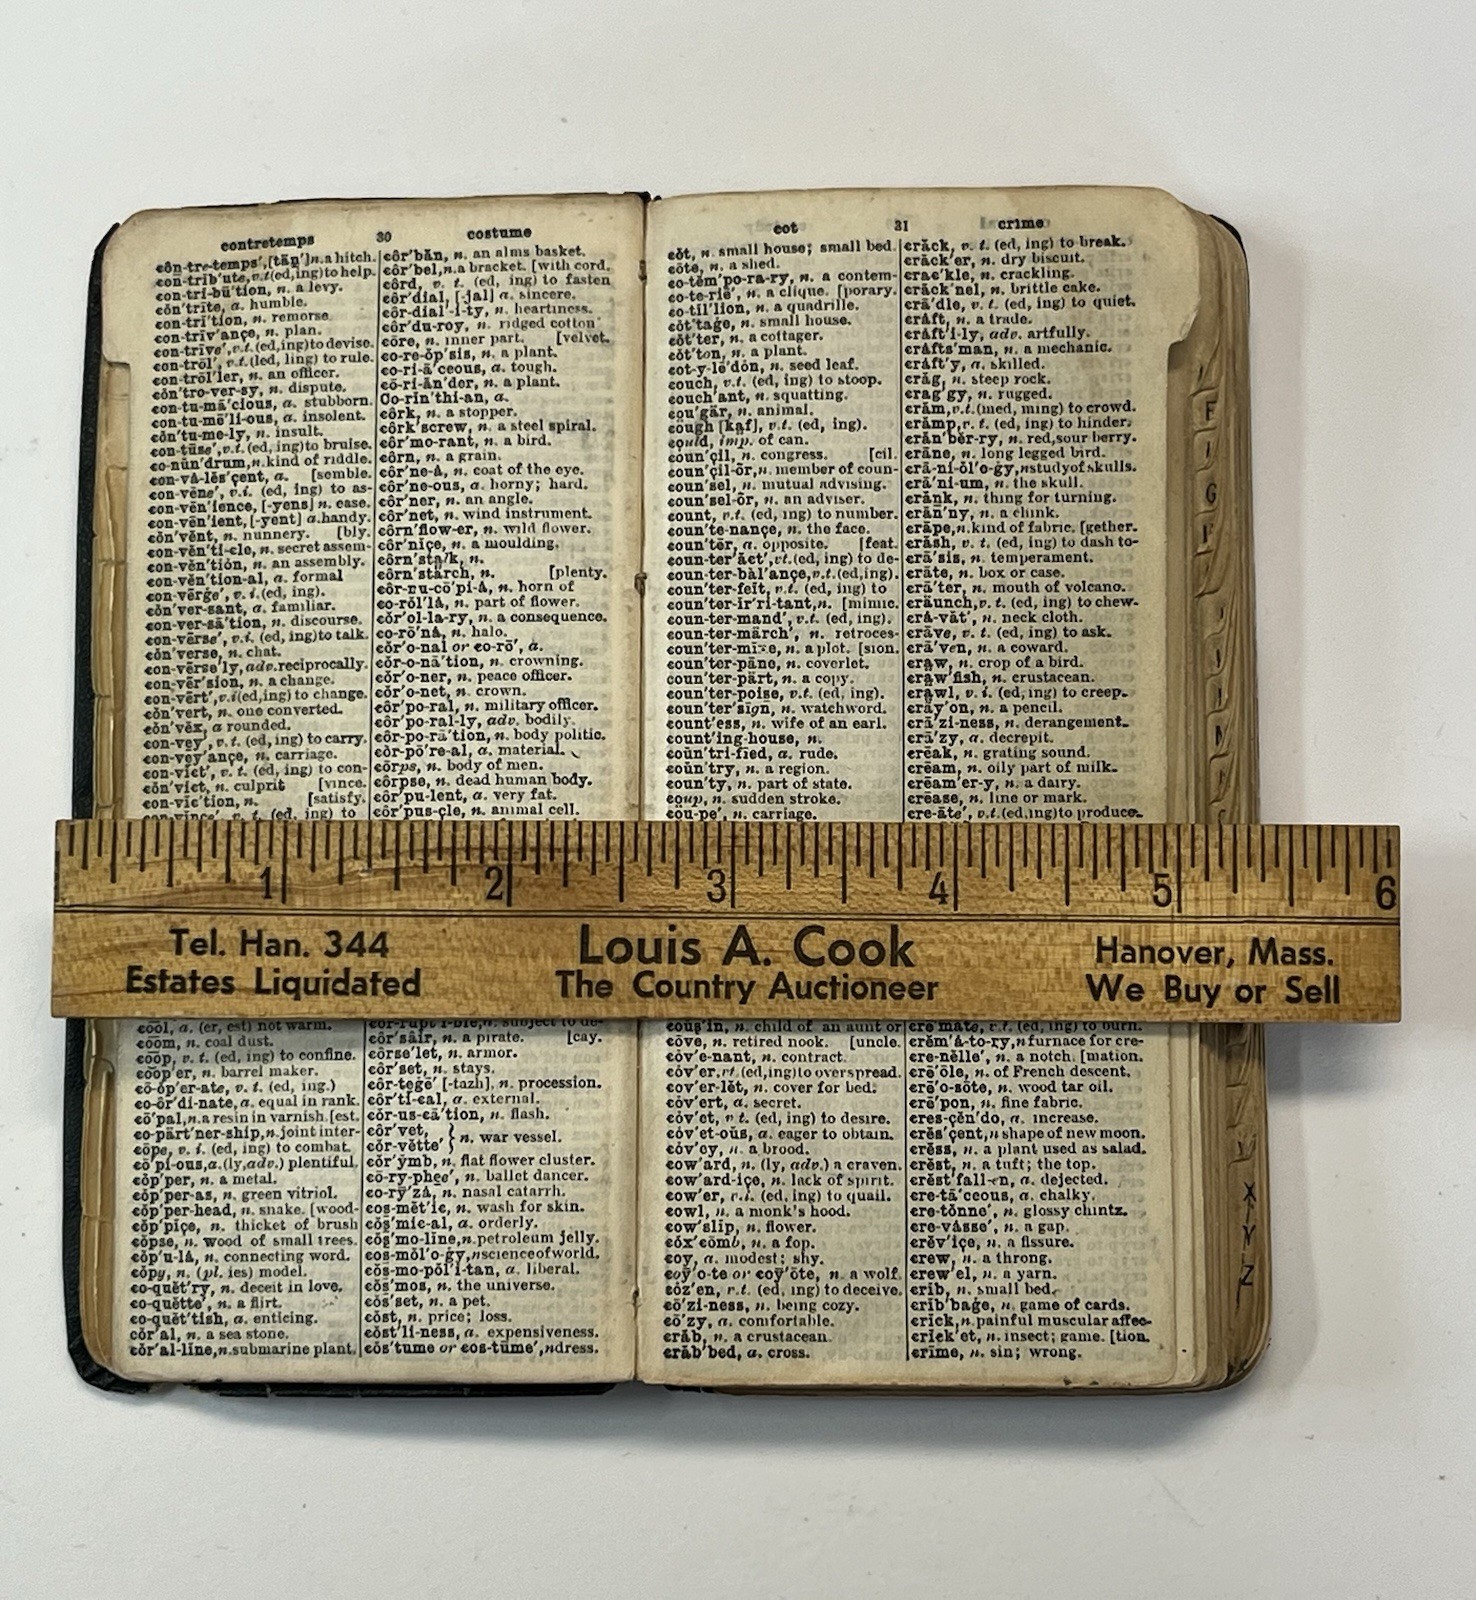 contretemps 30 costume
con-tre-temps', [täṅ'] n. a hitch.
con-trib'ute, v.t. (ed, ing) to help.
con-tri-bū'tion, n. a levy.
cŏn'trīte, a. humble.
con-trī'tion, n. remorse.
con-trīv'ançe, n. plan.
con-trīve', v.t. (ed, ing) to devise.
con-trōl', v.t. (led, ling) to rule.
con-trōl'ler, n. an officer.
cŏn'tro-ver-sy, n. dispute.
con-tu-mā'cious, a. stubborn.
con-tu-mē'li-ous, a. insolent.
cŏn'tu-me-ly, n. insult.
con-tūse', v.t. (ed, ing) to bruise.
co-nŭn'drum, n. kind of riddle.
con-va-lĕs'çent, a. [semble.
con-vēne', v.i. (ed, ing) to as-
con-vēn'ience, [-yens] n. ease.
con-vēn'ient, [-yent] a. handy.
cŏn'vĕnt, n. nunnery. [bly.
con-vĕn'ti-cle, n. secret assem-
con-vĕn'tion, n. an assembly.
con-vĕn'tion-al, a. formal
con-vẽrge', v.i. (ed, ing).
cŏn'ver-sant, a. familiar.
con-ver-sā'tion, n. discourse.
con-vẽrse', v.i. (ed, ing) to talk.
cŏn'verse, n. chat.
con-vẽrse'ly, adv. reciprocally.
con-vẽr'sion, n. a change.
con-vẽrt', v.i. (ed, ing) to change.
cŏn'vert, n. one converted.
cŏn'vĕx, a rounded.
con-vey', v.t. (ed, ing) to carry.
con-vey'ançe, n. carriage.
con-vict', v. t. (ed, ing) to con-
cŏn'vict, n. culprit [vince.
con-vic'tion, n. [satisfy.
con-vince', v. t. (ed, ing) to
côr'băn, n. an alms basket.
côr'bel, n. a bracket. [with cord.
côrd, v. t. (ed, ing) to fasten
côr'dial, [-jal] a. sincere.
côr-dial'-i-ty, n. heartiness.
côr'du-roy, n. ridged cotton
cōre, n. inner part. [velvet.
co-re-ŏp'sis, n. a plant.
co-ri-ā'ceous, a. tough.
cō-ri-ăn'der, n. a plant.
Co-rin'thi-an, a.
côrk, n. a stopper.
côrk'screw, n. a steel spiral.
côr'mo-rant, n. a bird.
côrn, n. a grain.
côr'ne-a, n. coat of the eye.
côr'ne-ous, a. horny; hard.
côr'ner, n. an angle.
côr'net, n. wind instrument.
côrn'flow-er, n. wild flower.
côr'niçe, n. a moulding.
côrn'stalk, n.
côrn'stärch, n. [plenty.
côr-nu-cō'pi-a, n. horn of
co-rŏl'la, n. part of flower.
cŏr'ol-la-ry, n. a consequence.
co-rō'na, n. halo.
cŏr'o-nal or co-rō', a.
cŏr-o-nā'tion, n. crowning.
cŏr'o-ner, n. peace officer.
cŏr'o-net, n. crown.
côr'po-ral, n. military officer.
côr'po-ral-ly, adv. bodily.
côr-po-rā'tion, n. body politic.
côr-pō're-al, a. material.
cōrps, n. body of men.
côrpse, n. dead human body.
côr'pu-lent, a. very fat.
côr'pus-çle, n. animal cell.
cot 31 crime
cŏt, n. small house; small bed.
cōte, n. a shed.
co-tĕm'po-ra-ry, n. a contem-
co-te-rïe', n. a clique. [porary.
co-til'lion, n. a quadrille.
cŏt'tage, n. small house.
cŏt'ter, n. a cottager.
cŏt'ton, n. a plant.
cot-y-lē'don, n. seed leaf.
couch, v.t. (ed, ing) to stoop.
couch'ant, n. squatting.
cou'gär, n. animal.
cough [kaf], v.t. (ed, ing).
could, imp. of can.
coun'çil, n. congress. [cil.
coun'çil-ŏr, n. member of coun-
coun'sel, n. mutual advising.
coun'sel-ŏr, n. an adviser.
count, v.t. (ed, ing) to number.
coun'te-nançe, n. the face.
coun'tẽr, a. opposite. [feat.
coun-ter'ăct', v.t. (ed, ing) to de-
coun-ter-băl'ançe, v.t. (ed, ing).
coun'ter-feit, v.t. (ed, ing) to
coun'ter-ir'ri-tant, n. [mimic.
coun-ter-mand', v.t. (ed, ing).
coun-ter-märch', n. retroces-
coun'ter-mīne, n. a plot. [sion.
coun'ter-pāne, n. coverlet.
coun'ter-pärt, n. a copy.
coun'ter-poise, v.t. (ed, ing).
coun'ter'sīgn, n. watchword.
count'ess, n. wife of an earl.
count'ing-house, n.
coŭn'tri-fīed, a. rude.
coŭn'try, n. a region.
coun'ty, n. part of state.
coup, n. sudden stroke.
cou-pe', n. carriage.
crăck, v. t. (ed, ing) to break.
crăck'er, n. dry biscuit.
crac'kle, n. crackling.
crăck'nel, n. brittle cake.
crā'dle, v. t. (ed, ing) to quiet.
cráft, n. a trade.
cráft'i-ly, adv. artfully.
cráfts'man, n. a mechanic.
cráft'y, a. skilled.
crăg, n. steep rock.
crag'gy, n. rugged.
crăm, v.t. (med, ming) to crowd.
crămp, v. t. (ed, ing) to hinder.
crăn'bĕr-ry, n. red, sour berry.
crāne, n. long legged bird.
crā-ni-ŏl'o-gy, n study of skulls.
crā'ni-um, n. the skull.
crănk, n. thing for turning.
crăn'ny, n. a chink.
crāpe, n. kind of fabric. [gether.
crăsh, v. t. (ed, ing) to dash to-
crā'sis, n. temperament.
crāte, n. box or case.
crā'ter, n. mouth of volcano.
cräunch, v. t. (ed, ing) to chew.
cra-văt', n. neck cloth.
crāve, v. t. (ed, ing) to ask.
crā'ven, n. a coward.
craw, n. crop of a bird.
craw'fish, n. crustacean.
crawl, v. i. (ed, ing) to creep.
crāy'on, n. a pencil.
crā'zi-ness, n. derangement.
crā'zy, a. decrepit.
crēak, n. grating sound.
crēam, n. oily part of milk.
crēam'er-y, n. a dairy.
crēase, n. line or mark.
cre-āte', v.t. (ed, ing) to produce.
1 2 3 4 5 6
Tel. Han. 344 Louis A. Cook Hanover, Mass.
Estates Liquidated The Country Auctioneer We Buy or Sell
cool, a. (er, est) not warm.
coom, n. coal dust.
coop, v. t. (ed, ing) to confine.
coop'er, n. barrel maker.
cō-ŏp'er-ate, v. t. (ed, ing.)
co-ôr'di-nate, a. equal in rank.
cō'pal, n. a resin in varnish. [est.
co-pärt'ner-ship, n. joint inter-
cōpe, v. t. (ed, ing) to combat.
cō'pi-ous, a. (ly, adv.) plentiful.
cŏp'per, n. a metal.
cŏp'per-as, n. green vitriol.
cŏp'per-head, n. snake. [wood-
cŏp'piçe, n. thicket of brush
cŏpse, n. wood of small trees.
cŏp'u-la, n. connecting word.
cŏpy, n. (pl. ies) model.
co-quĕt'ry, n. deceit in love.
co-quĕtte', n. a flirt.
co-quĕt'tish, a. enticing.
cŏr'al, n. a sea stone.
cŏr'al-line, n. submarine plant.
cor-rupt'i-ble, n. subject to de-
côr'sâir, n. a pirate. [cay.
côrse'let, n. armor.
côr'set, n. stays.
côr-tegē' [-tazh], n. procession.
côr'ti-cal, a. external.
cŏr-us-cā'tion, n. flash.
côr'vet,
côr-vĕtte' } n. war vessel.
cŏr'ymb, n. flat flower cluster.
co-ry-phee', n. ballet dancer.
co-rȳ'za, n. nasal catarrh.
cos-mĕt'ic, n. wash for skin.
cos'mic-al, a. orderly.
cos'mo-line, n. petroleum jelly.
cos-mŏl'o-gy, n science of world.
cŏs-mo-pŏl'i-tan, a. liberal.
cŏs'mos, n. the universe.
cŏs'set, n. a pet.
cŏst, n. price; loss.
cŏst'li-ness, a. expensiveness.
cŏs'tume or cos-tūme', n dress.
cous'in, n. child of an aunt or
cōve, n. retired nook. [uncle.
cov'e-nant, n. contract.
cov'er, v.t. (ed, ing) to overspread.
cov'er-lĕt, n. cover for bed.
cov'ert, a. secret.
cov'et, v t. (ed, ing) to desire.
cov'et-oŭs, a. eager to obtain.
cov'ey, n. a brood.
cow'ard, n. (ly, adv.) a craven.
cow'ard-içe, n. lack of spirit.
cow'er, v.i. (ed, ing) to quail.
cowl, n. a monk's hood.
cow'slip, n. flower.
cŏx'cōmb, n. a fop.
coy, a. modest; shy.
coy'o-te or coy'ōte, n. a wolf.
coz'en, v.t. (ed, ing) to deceive.
cō'zi-ness, n. being cozy.
cō'zy, a. comfortable.
crăb, n. a crustacean.
crăb'bed, a. cross.
cre'mate, v.t. (ed, ing) to burn.
crĕm'a-to-ry, n furnace for cre-
cre-nĕlle', n. a notch. [mation.
crē'ōle, n. of French descent.
crē'o-sōte, n. wood tar oil.
crē'pon, n. fine fabric.
cres-çĕn'do, a. increase.
crĕs'çent, n shape of new moon.
crĕss, n. a plant used as salad.
crĕst, n. a tuft; the top.
crĕst'fall-en, a. dejected.
cre-tā'ceous, a. chalky.
cre-tŏnne', n. glossy chintz.
cre-vásse', n. a gap.
crĕv'içe, n. a fissure.
crew, n. a throng.
crew'el, n. a yarn.
crib, n. small bed.
crib'bage, n. game of cards.
crick, n. painful muscular affec-
crick'et, n. insect; game. [tion.
crīme, n. sin; wrong.
F
G
X
Y
Z